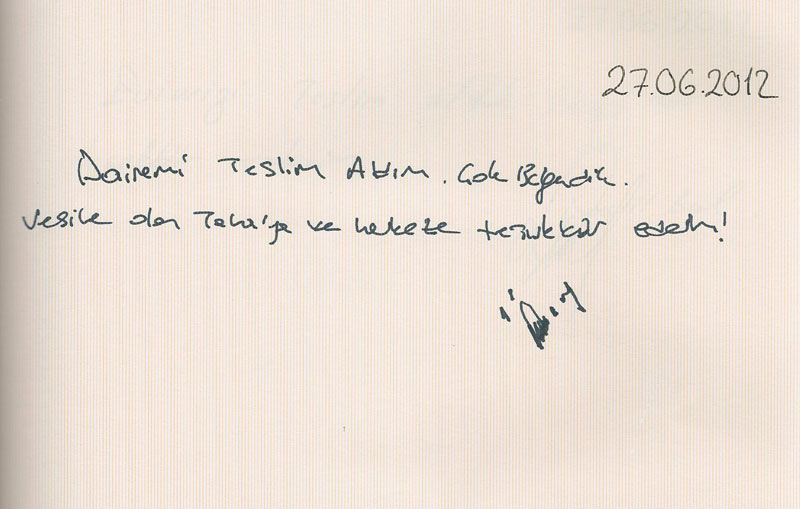 27.06.2012
Dairemi Teslim Aldım. Çok Beğendik.
Vesile olan Taha'ya ve herkese teşekkür ederim!